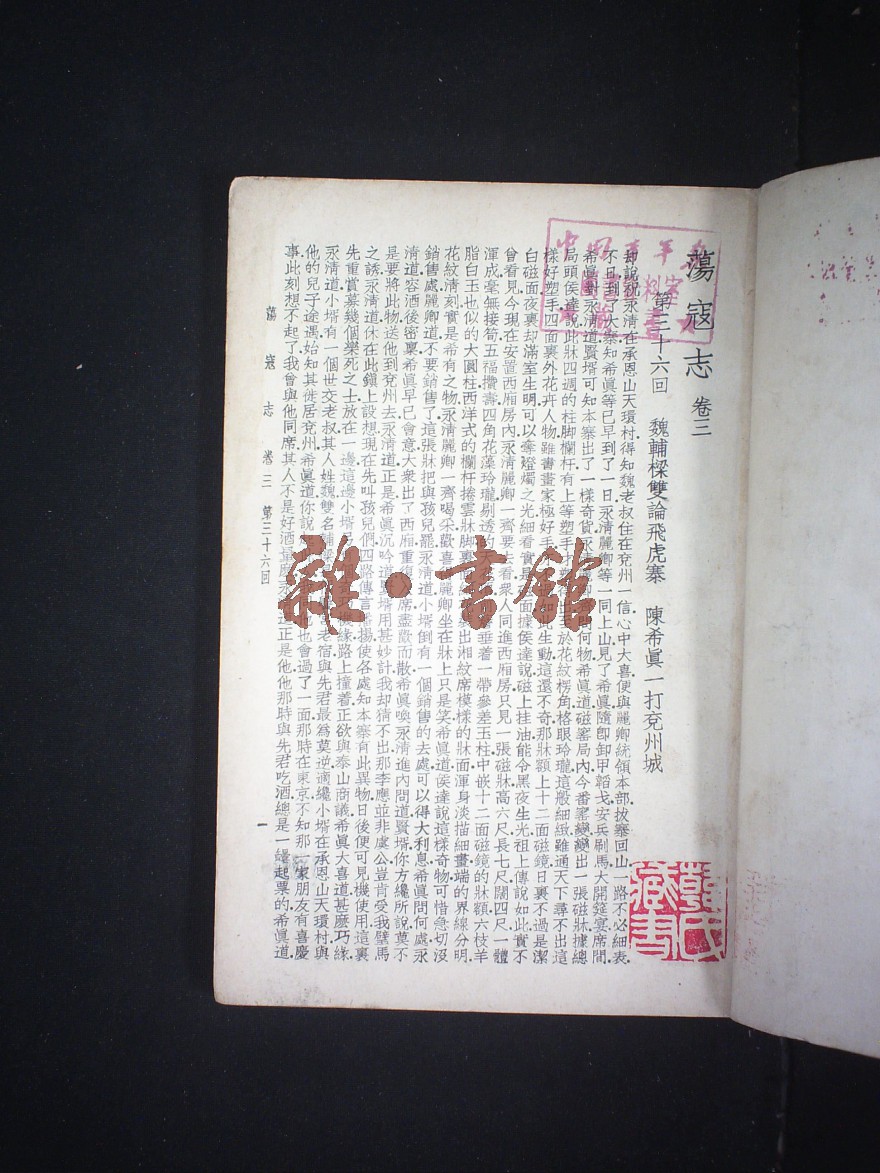 蕩寇志 卷三
第三十六回 魏輔樑雙論飛虎寨 陳希眞一打兗州城
却說祝永清在承恩山天環村得知魏老叔住在兗州一信心中大喜便與麗卿統領本部拔寨回山一路不必細表
不日到了大寨知希眞等已早到了一日永清麗卿等一同上山見了希眞隨卽卸甲韜戈安兵刷馬大開筵宴席間
希眞對永清道賢壻可知本寨出了一樣奇貨永清問何物希眞道磁窰局內今番窰變變出一張磁牀據總
局頭侯達說此牀四週的柱脚欄杆有上等塑手
樣好塑手四面裏外花卉人物雖書畫家極好手
於花紋楞角格眼玲瓏這般細緻雖通天下尋不出這
生動這還不奇那牀額上十二面磁鏡日裏不過是潔
白磁面夜裏却滿室生明可以奪燈燭之光細看實是
面據侯達說磁上挂油能令黑夜生光祖上傳說如此實不
曾看見今現在安置西廂房內永清麗卿一齊要去看衆人同進西廂房只見一張磁牀高六尺長七尺闊四尺一體
渾成毫無接筍五福攢壽四角花藻玲瓏剔透
垂着一帶參差玉柱中嵌十二面磁鏡的牀額六枝羊
脂白玉也似的大圓柱西洋式的欄杆捲雲牀脚
出湘紋席模樣的牀面渾身淡描細畫端的界線分明
花紋清刻實是希有之物永清麗卿一齊喝采歡喜
麗卿坐在牀上只是笑希眞道侯達說這樣奇物可惜急切沒
銷售處麗卿道不要銷售了這張牀把與孩兒罷永清道小壻倒有一個銷售的去處可以得大利息希眞問何處永
清道容酒後密稟希眞早已會意大衆出了西廂重復
席盡歡而散希眞喚永清進內間道賢壻你方纔所說莫不
是要將此物送他到兗州去永清道正是希眞沉吟道
壻用甚妙計我却猜不出那李應並非虞公豈肯受我璧馬
之誘永清道休在此鎭上設想現在先叫孩兒們四路傳言播揚使各處知本寨有此異物日後便可見機使用這裏
先重賞募幾個樂死之士放在一邊這邊小壻
機緣路上撞着正欲與泰山商議希眞大喜道甚麽巧緣
永清道小壻有一個世交老叔其人姓魏雙名輔
老宿與先君最爲莫逆適纔小壻在承恩山天環村與
他的兒子途遇始知其徙居兗州希眞道你說
也會過了一面那時在東京不知那一家朋友有喜慶
事此刻想不起了我曾與他同席其人不是好酒
正是他他那時與先君吃酒總是一罎起票的希眞道
蕩寇志 卷三 第三十六回 一
雜·書館
藏書